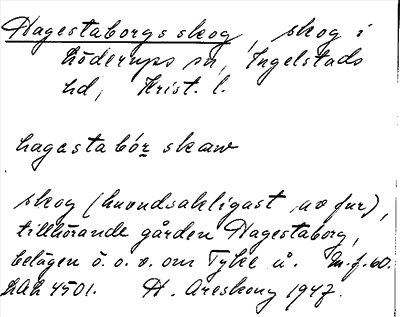 Hagestaborgs skog, skog i
Löderups sn, Ingelstads
hd, Krist. l.
hagastabór skaw
skog (huvudsakligast av fur),
tillhörande gården Hagestaborg,
belägen ö. o. v. om Tyke å. M.f. 60.
LAL 4501. H. Areskoug 1947.